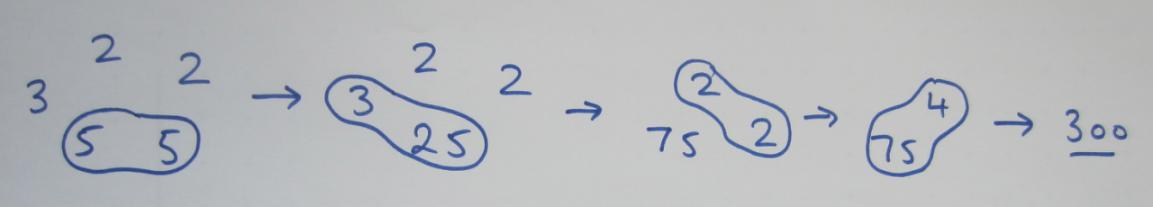 3 2 2 5 5 → 3 2 2 25 → 75 2 2 → 75 4 → 300